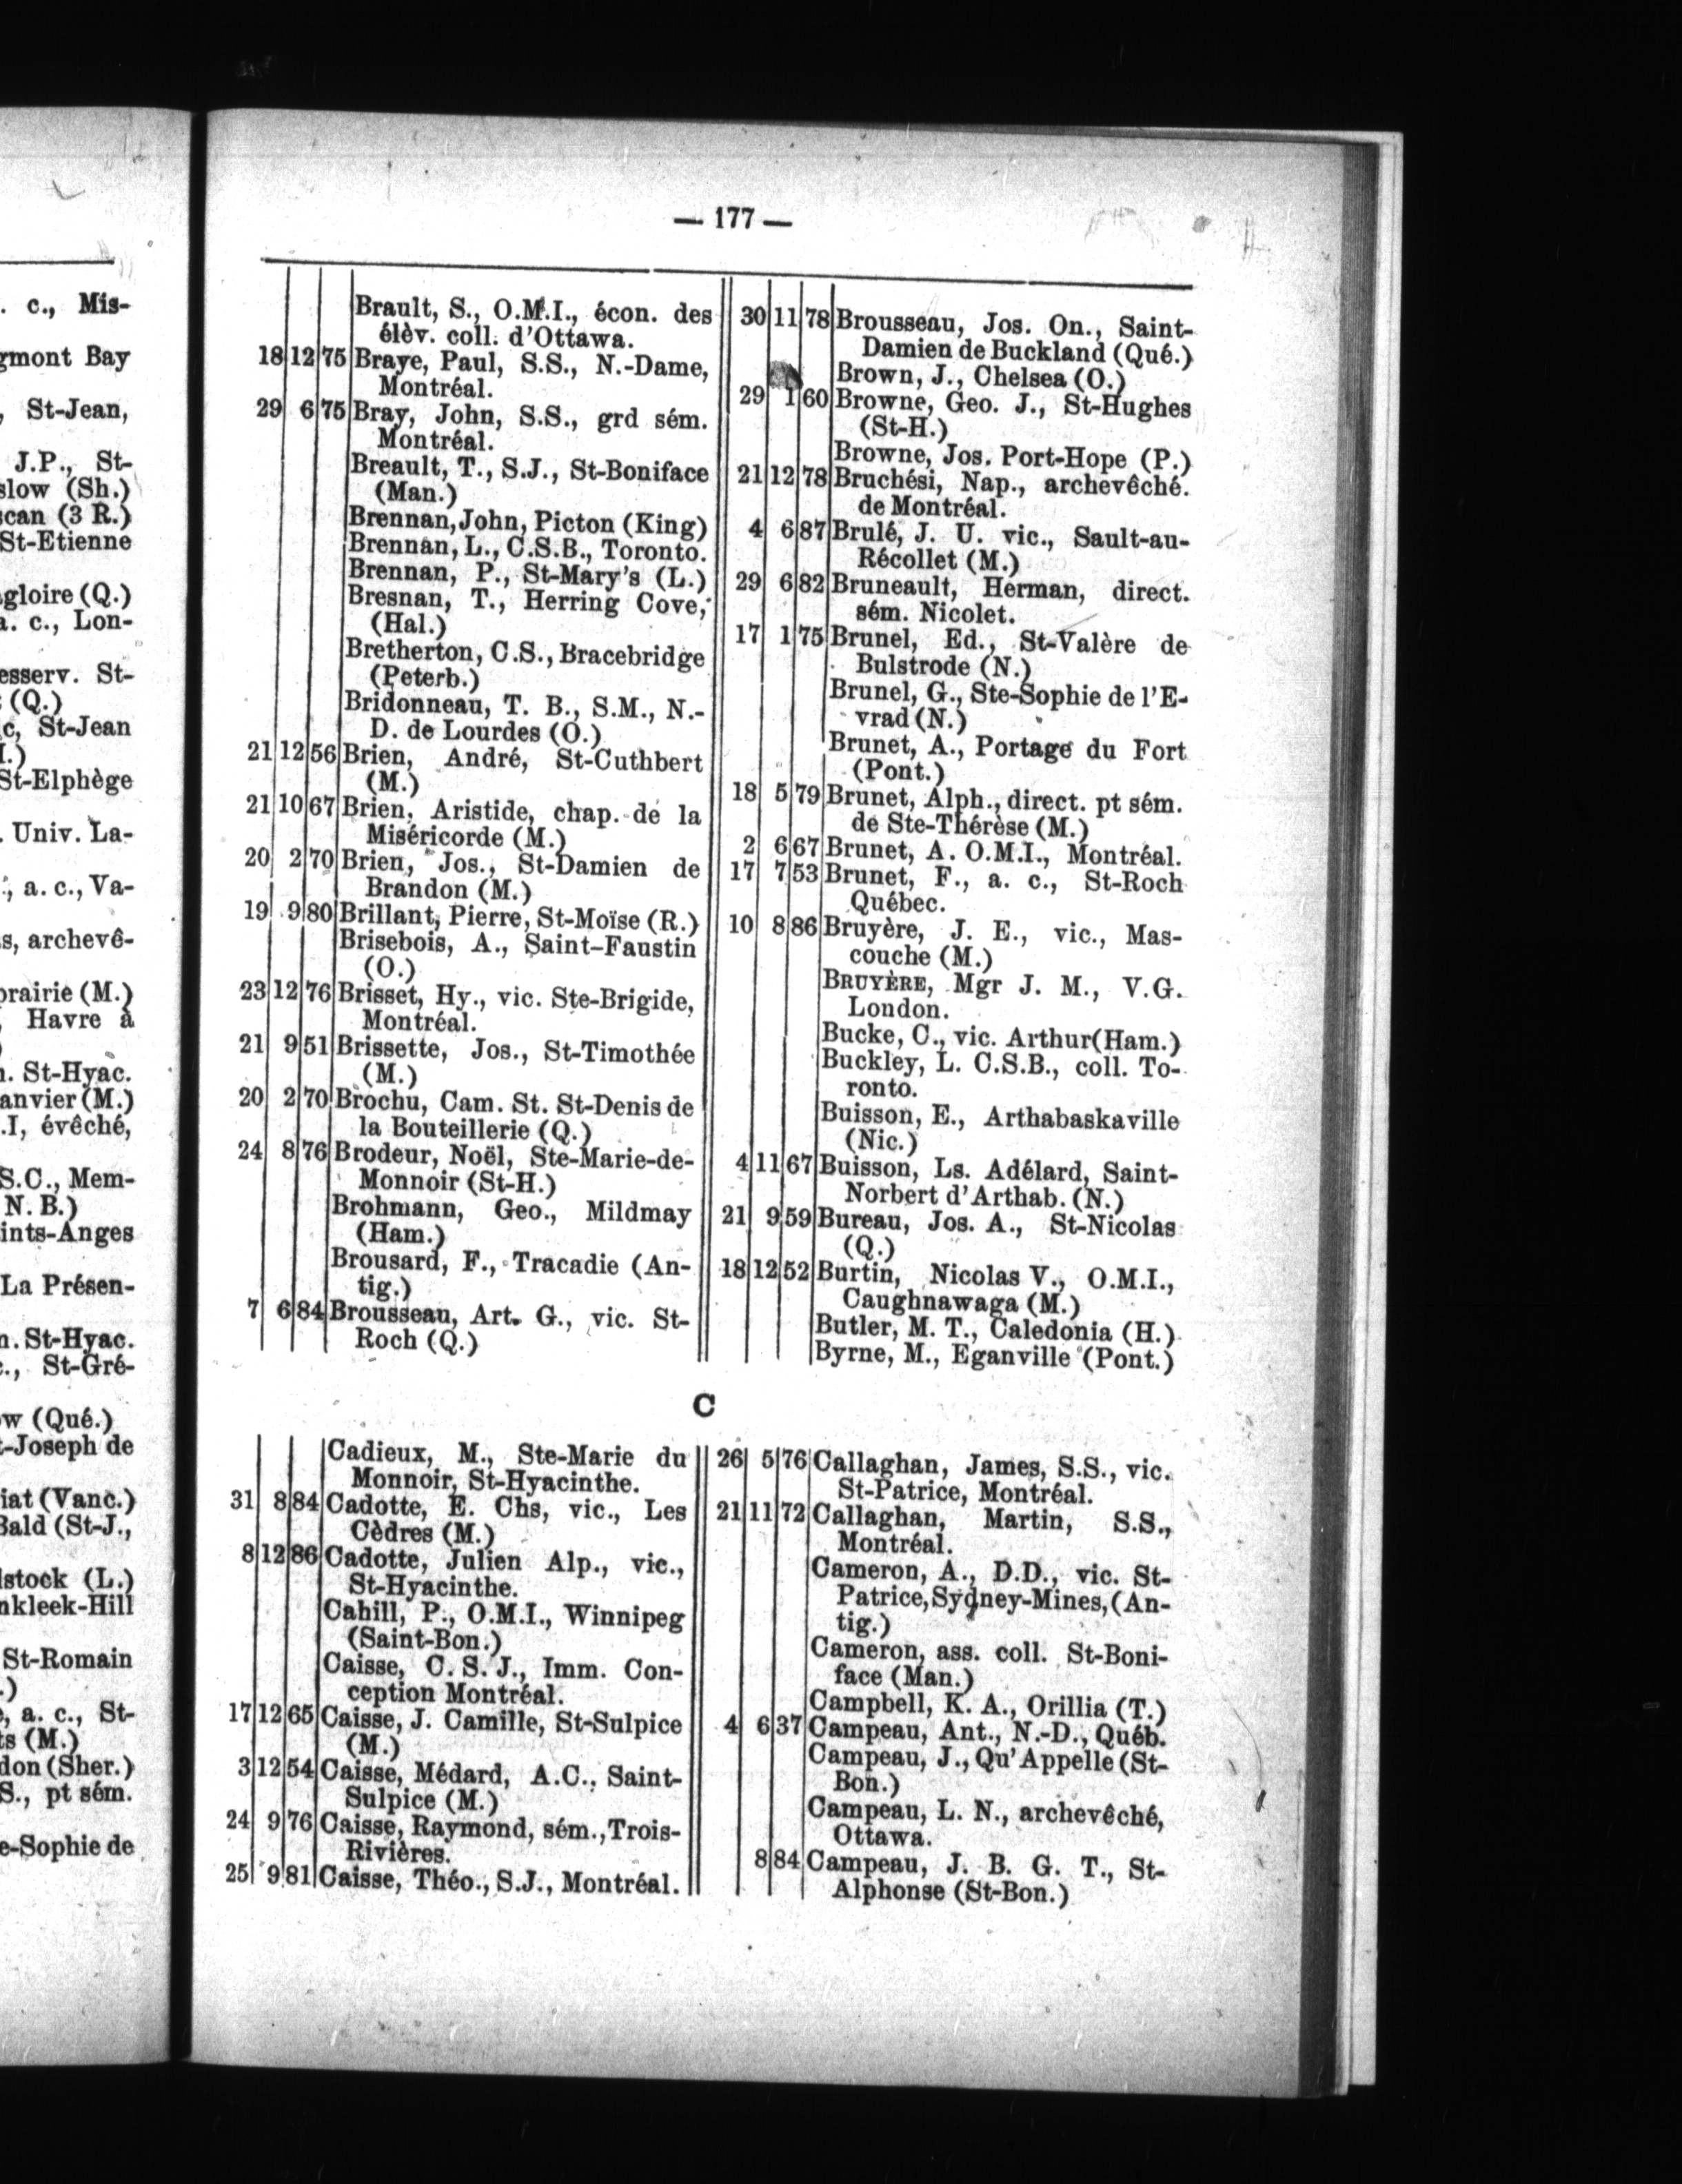 . c., Mis-
gmont Bay
, St-Jean,
J.P., St-
slow (Sh.)
scan (3 R.)
St-Etienne
gloire (Q.)
a. c., Lon-
esserv. St-
(Q.)
c, St-Jean
I.)
St-Elphège
. Univ. La-
, a. c., Va-
s, archevê-
prairie (M.)
, Havre à
)
n. St-Hyac.
anvier (M.)
.I, évêché,
S.C., Mem-
N. B.)
ints-Anges
La Présen-
n. St-Hyac.
c., St-Gré-
ow (Qué.)
t-Joseph de
iat (Vanc.)
Bald (St-J.,
lstock (L.)
nkleek-Hill
St-Romain
.)
e, a. c., St-
ts (M.)
don (Sher.)
S., pt sém.
e-Sophie de
— 177 —
Brault, S., O.M.I., écon. des
élèv. coll. d'Ottawa.
18 12 75 Braye, Paul, S.S., N.-Dame,
Montréal.
29 6 75 Bray, John, S.S., grd sém.
Montréal.
Breault, T., S.J., St-Boniface
(Man.)
Brennan, John, Picton (King)
Brennan, L., C.S.B., Toronto.
Brennan, P., St-Mary's (L.)
Bresnan, T., Herring Cove,
(Hal.)
Bretherton, C.S., Bracebridge
(Peterb.)
Bridonneau, T. B., S.M., N.-
D. de Lourdes (O.)
21 12 56 Brien, André, St-Cuthbert
(M.)
21 10 67 Brien, Aristide, chap. de la
Miséricorde (M.)
20 2 70 Brien, Jos., St-Damien de
Brandon (M.)
19 9 80 Brillant, Pierre, St-Moïse (R.)
Brisebois, A., Saint-Faustin
(O.)
23 12 76 Brisset, Hy., vic. Ste-Brigide,
Montréal.
21 9 51 Brissette, Jos., St-Timothée
(M.)
20 2 70 Brochu, Cam. St. St-Denis de
la Bouteillerie (Q.)
24 8 76 Brodeur, Noël, Ste-Marie-de-
Monnoir (St-H.)
Brohmann, Geo., Mildmay
(Ham.)
Brousard, F., Tracadie (An-
tig.)
7 6 84 Brousseau, Art. G., vic. St-
Roch (Q.)
30 11 78 Brousseau, Jos. On., Saint-
Damien de Buckland (Qué.)
Brown, J., Chelsea (O.)
29 1 60 Browne, Geo. J., St-Hughes
(St-H.)
Browne, Jos. Port-Hope (P.)
21 12 78 Bruchési, Nap., archevêché.
de Montréal.
4 6 87 Brulé, J. U. vic., Sault-au-
Récollet (M.)
29 6 82 Bruneault, Herman, direct.
sém. Nicolet.
17 1 75 Brunel, Ed., St-Valère de
Bulstrode (N.)
Brunel, G., Ste-Sophie de l'E-
vrad (N.)
Brunet, A., Portage du Fort
(Pont.)
18 5 79 Brunet, Alph., direct. pt sém.
de Ste-Thérèse (M.)
2 6 67 Brunet, A. O.M.I., Montréal.
17 7 53 Brunet, F., a. c., St-Roch
Québec.
10 8 86 Bruyère, J. E., vic., Mas-
couche (M.)
BRUYÈRE, Mgr J. M., V.G.
London.
Bucke, C., vic. Arthur (Ham.)
Buckley, L. C.S.B., coll. To-
ronto.
Buisson, E., Arthabaskaville
(Nic.)
4 11 67 Buisson, Ls. Adélard, Saint-
Norbert d'Arthab. (N.)
21 9 59 Bureau, Jos. A., St-Nicolas
(Q.)
18 12 52 Burtin, Nicolas V., O.M.I.,
Caughnawaga (M.)
Butler, M. T., Caledonia (H.)
Byrne, M., Eganville (Pont.)
C
Cadieux, M., Ste-Marie du
Monnoir, St-Hyacinthe.
31 8 84 Cadotte, E. Chs, vic., Les
Cèdres (M.)
8 12 86 Cadotte, Julien Alp., vic.,
St-Hyacinthe.
Cahill, P., O.M.I., Winnipeg
(Saint-Bon.)
Caisse, C. S. J., Imm. Con-
ception Montréal.
17 12 65 Caisse, J. Camille, St-Sulpice
(M.)
3 12 54 Caisse, Médard, A.C., Saint-
Sulpice (M.)
24 9 76 Caisse, Raymond, sém., Trois-
Rivières.
25 9 81 Caisse, Théo., S.J., Montréal.
26 5 76 Callaghan, James, S.S., vic.
St-Patrice, Montréal.
21 11 72 Callaghan, Martin, S.S.,
Montréal.
Cameron, A., D.D., vic. St-
Patrice, Sydney-Mines, (An-
tig.)
Cameron, ass. coll. St-Boni-
face (Man.)
Campbell, K. A., Orillia (T.)
4 6 37 Campeau, Ant., N.-D., Québ.
Campeau, J., Qu'Appelle (St-
Bon.)
Campeau, L. N., archevêché,
Ottawa.
8 84 Campeau, J. B. G. T., St-
Alphonse (St-Bon.)